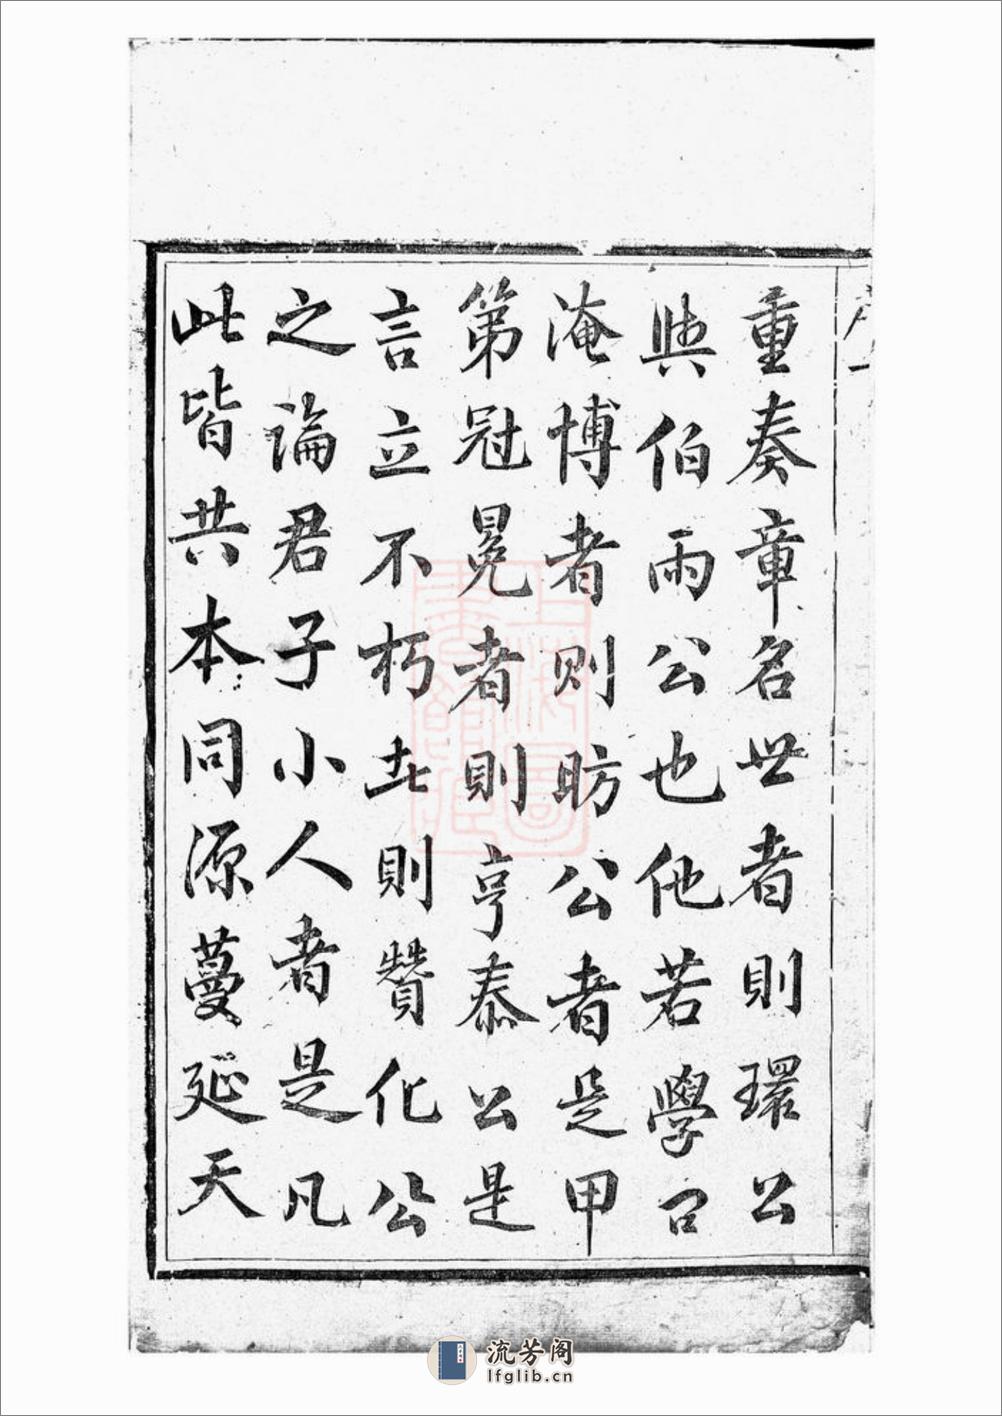 重奏章名世者則環公
與伯雨公也他若學口
淹博者則昉公者是甲
第冠冕者則亨泰公是
言立不朽者則贊化公
之論君子小人者是凡
此皆共本同源蔓延天
上海圖書館藏
流芳阁
lfglib.cn